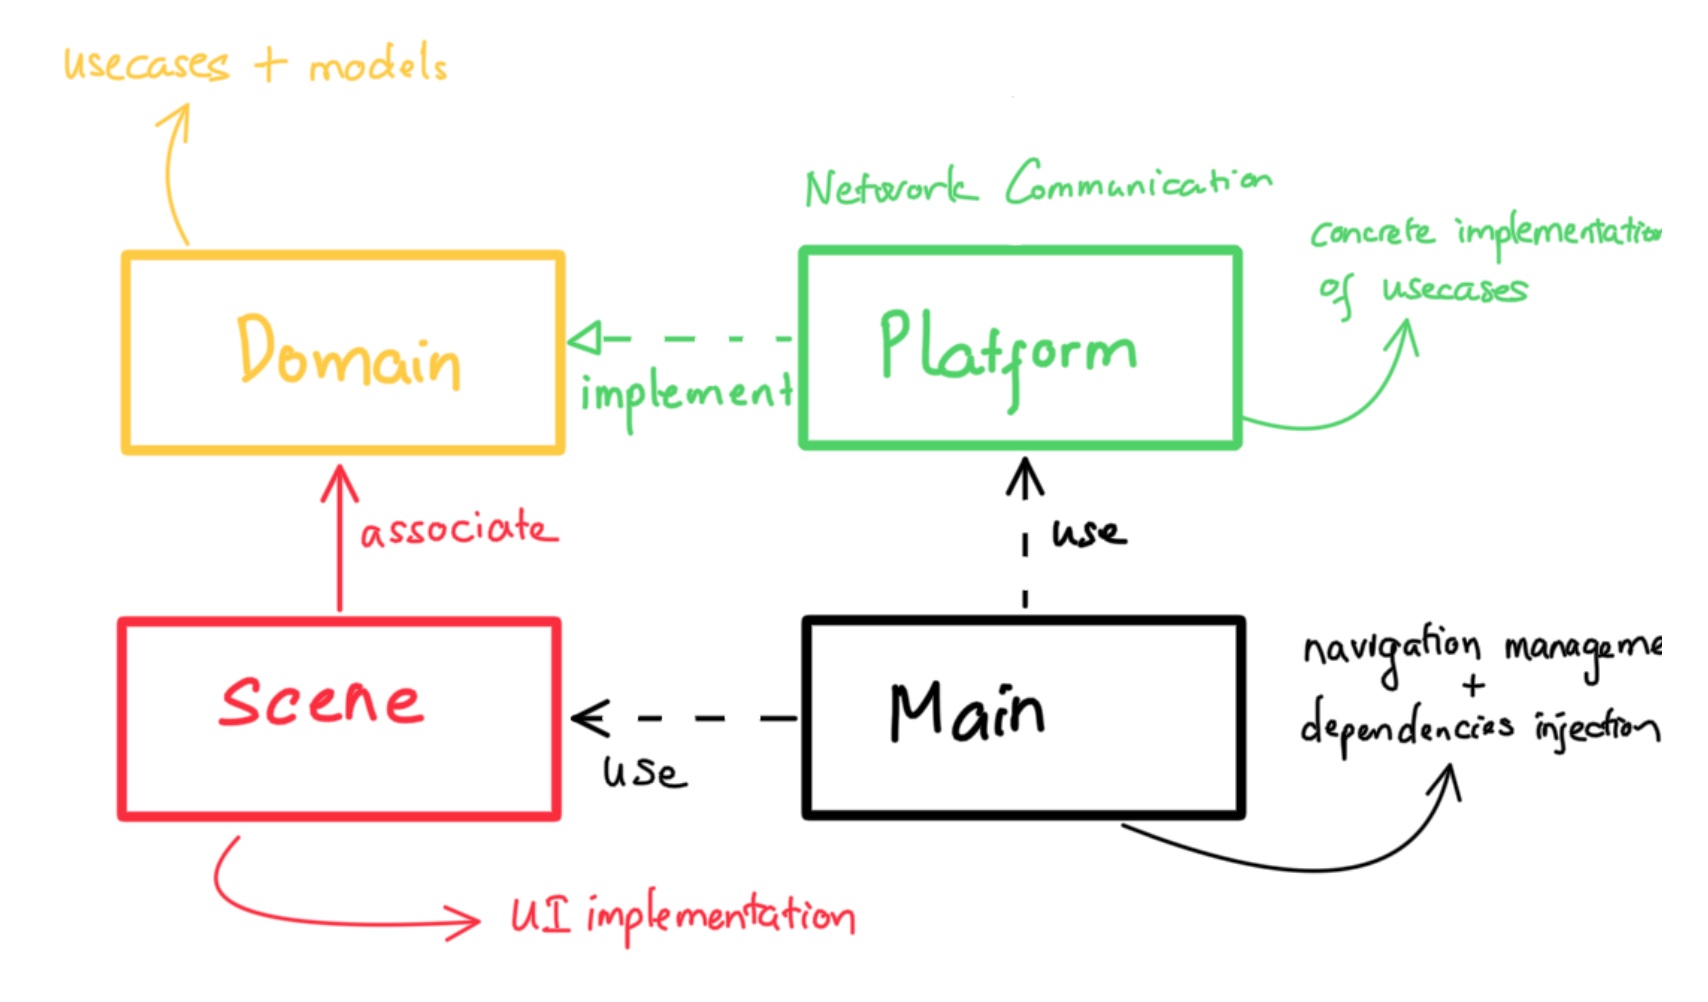 usecases + models
Network Communication
concrete implementation
of usecases
Domain
implement
Platform
associate
use
Scene
use
Main
navigation manageme
+
dependencies injection
UI implementation